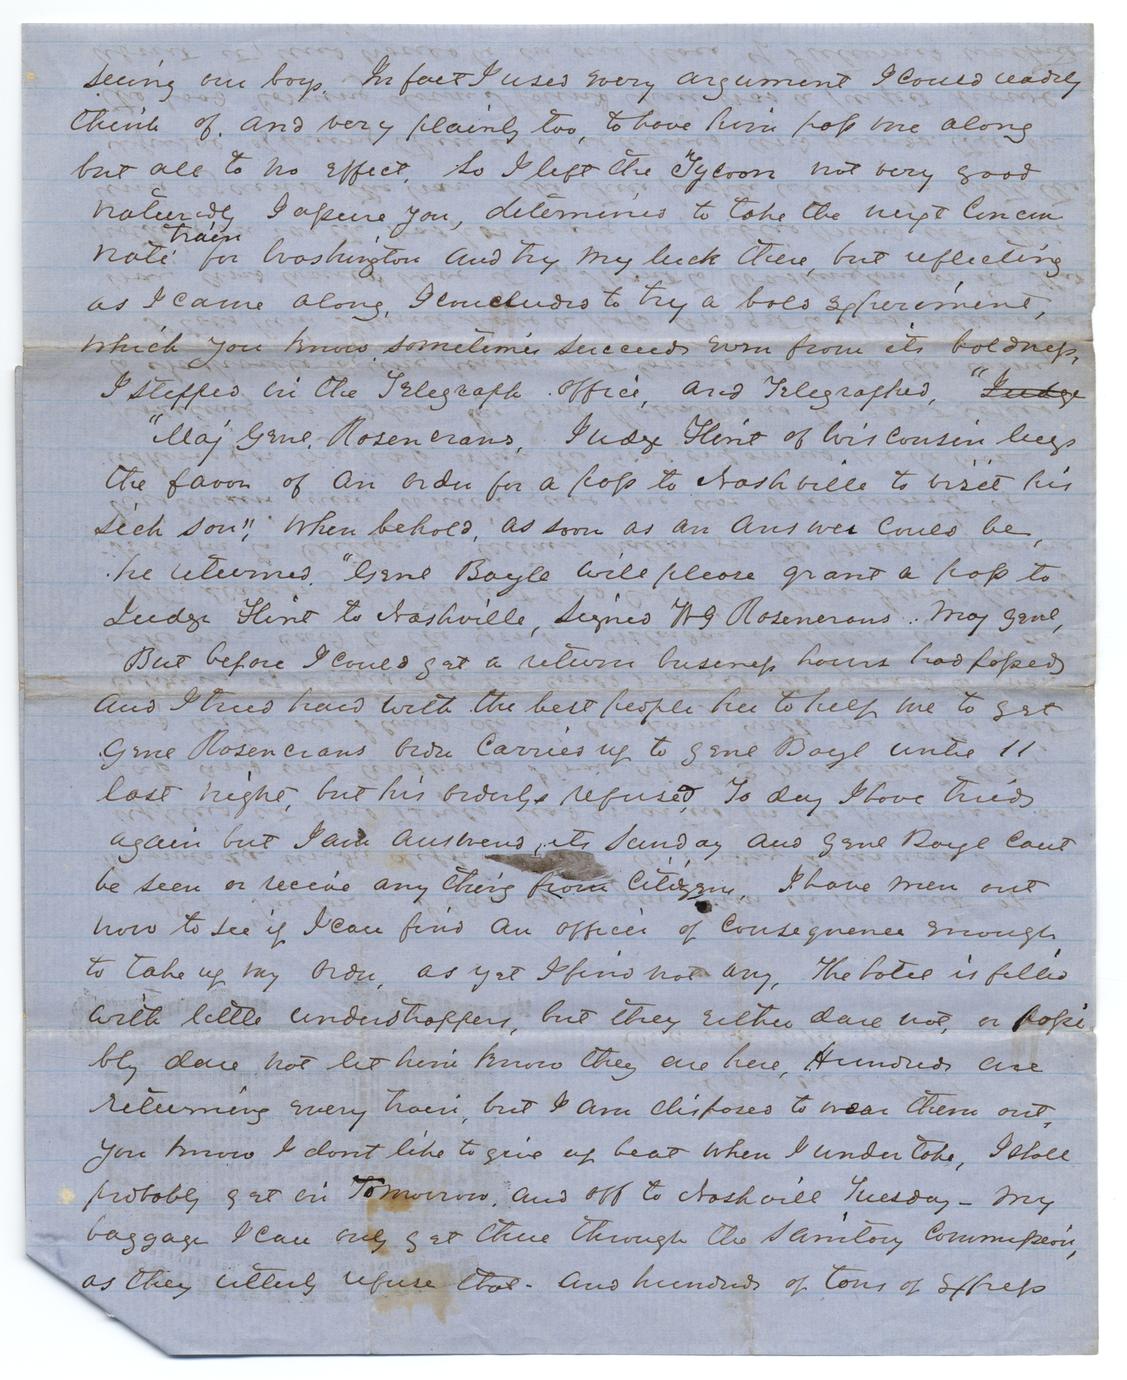 seeing our boys. In fact I used every argument I could readily
think of, and very plainly too, to have him pass me along
but all to no effect. So I left the "Tycoon not very good
naturedly I assure you, determined to take the next Cincin
nati train for Washington and try my luck there, but reflecting
as I came along, I concluded to try a bold experiment,
which you know, sometimes succeeds even from its boldness,
I stepped in the Telegraph office, and Telegraphed, "Judge
"Maj Genl. Rosencrans, Judge Flint of Wisconsin begs
the favor of an order for a pass to Nashville to visit his
sick son", When behold, as soon as an answer could be,
he returned. "Genl Boyle will please grant a pass to
Judge Flint to Nashville, signed W S Rosencrans. Maj Genl,
But before I could get a return business hours had passed
and I tried hard with the best people here to help me to get
Genl Rosencrans order carried up to Genl Boyl until 11
last night, but his orderlys refused, To day I have tried
again but I am answered, its Sunday and Genl Boyle cant
be seen or receive any thing from Citizens, I have men out
now to see if I can find an officer of consequence enough
to take up my order, as yet I find not any, The hotel is filled
with little understrappers, but they either dare not, or possi
bly dare not let him know they are here, Hundreds are
returning every train, but I am disposed to wear them out,
you know I dont like to give up beat when I under take, I shall
probably get in Tomorrow, and off to Nashvill Tuesday - My
baggage I can only get thru through the Sanitory Commission,
as they utterly refuse that - and hundreds of tons of Express